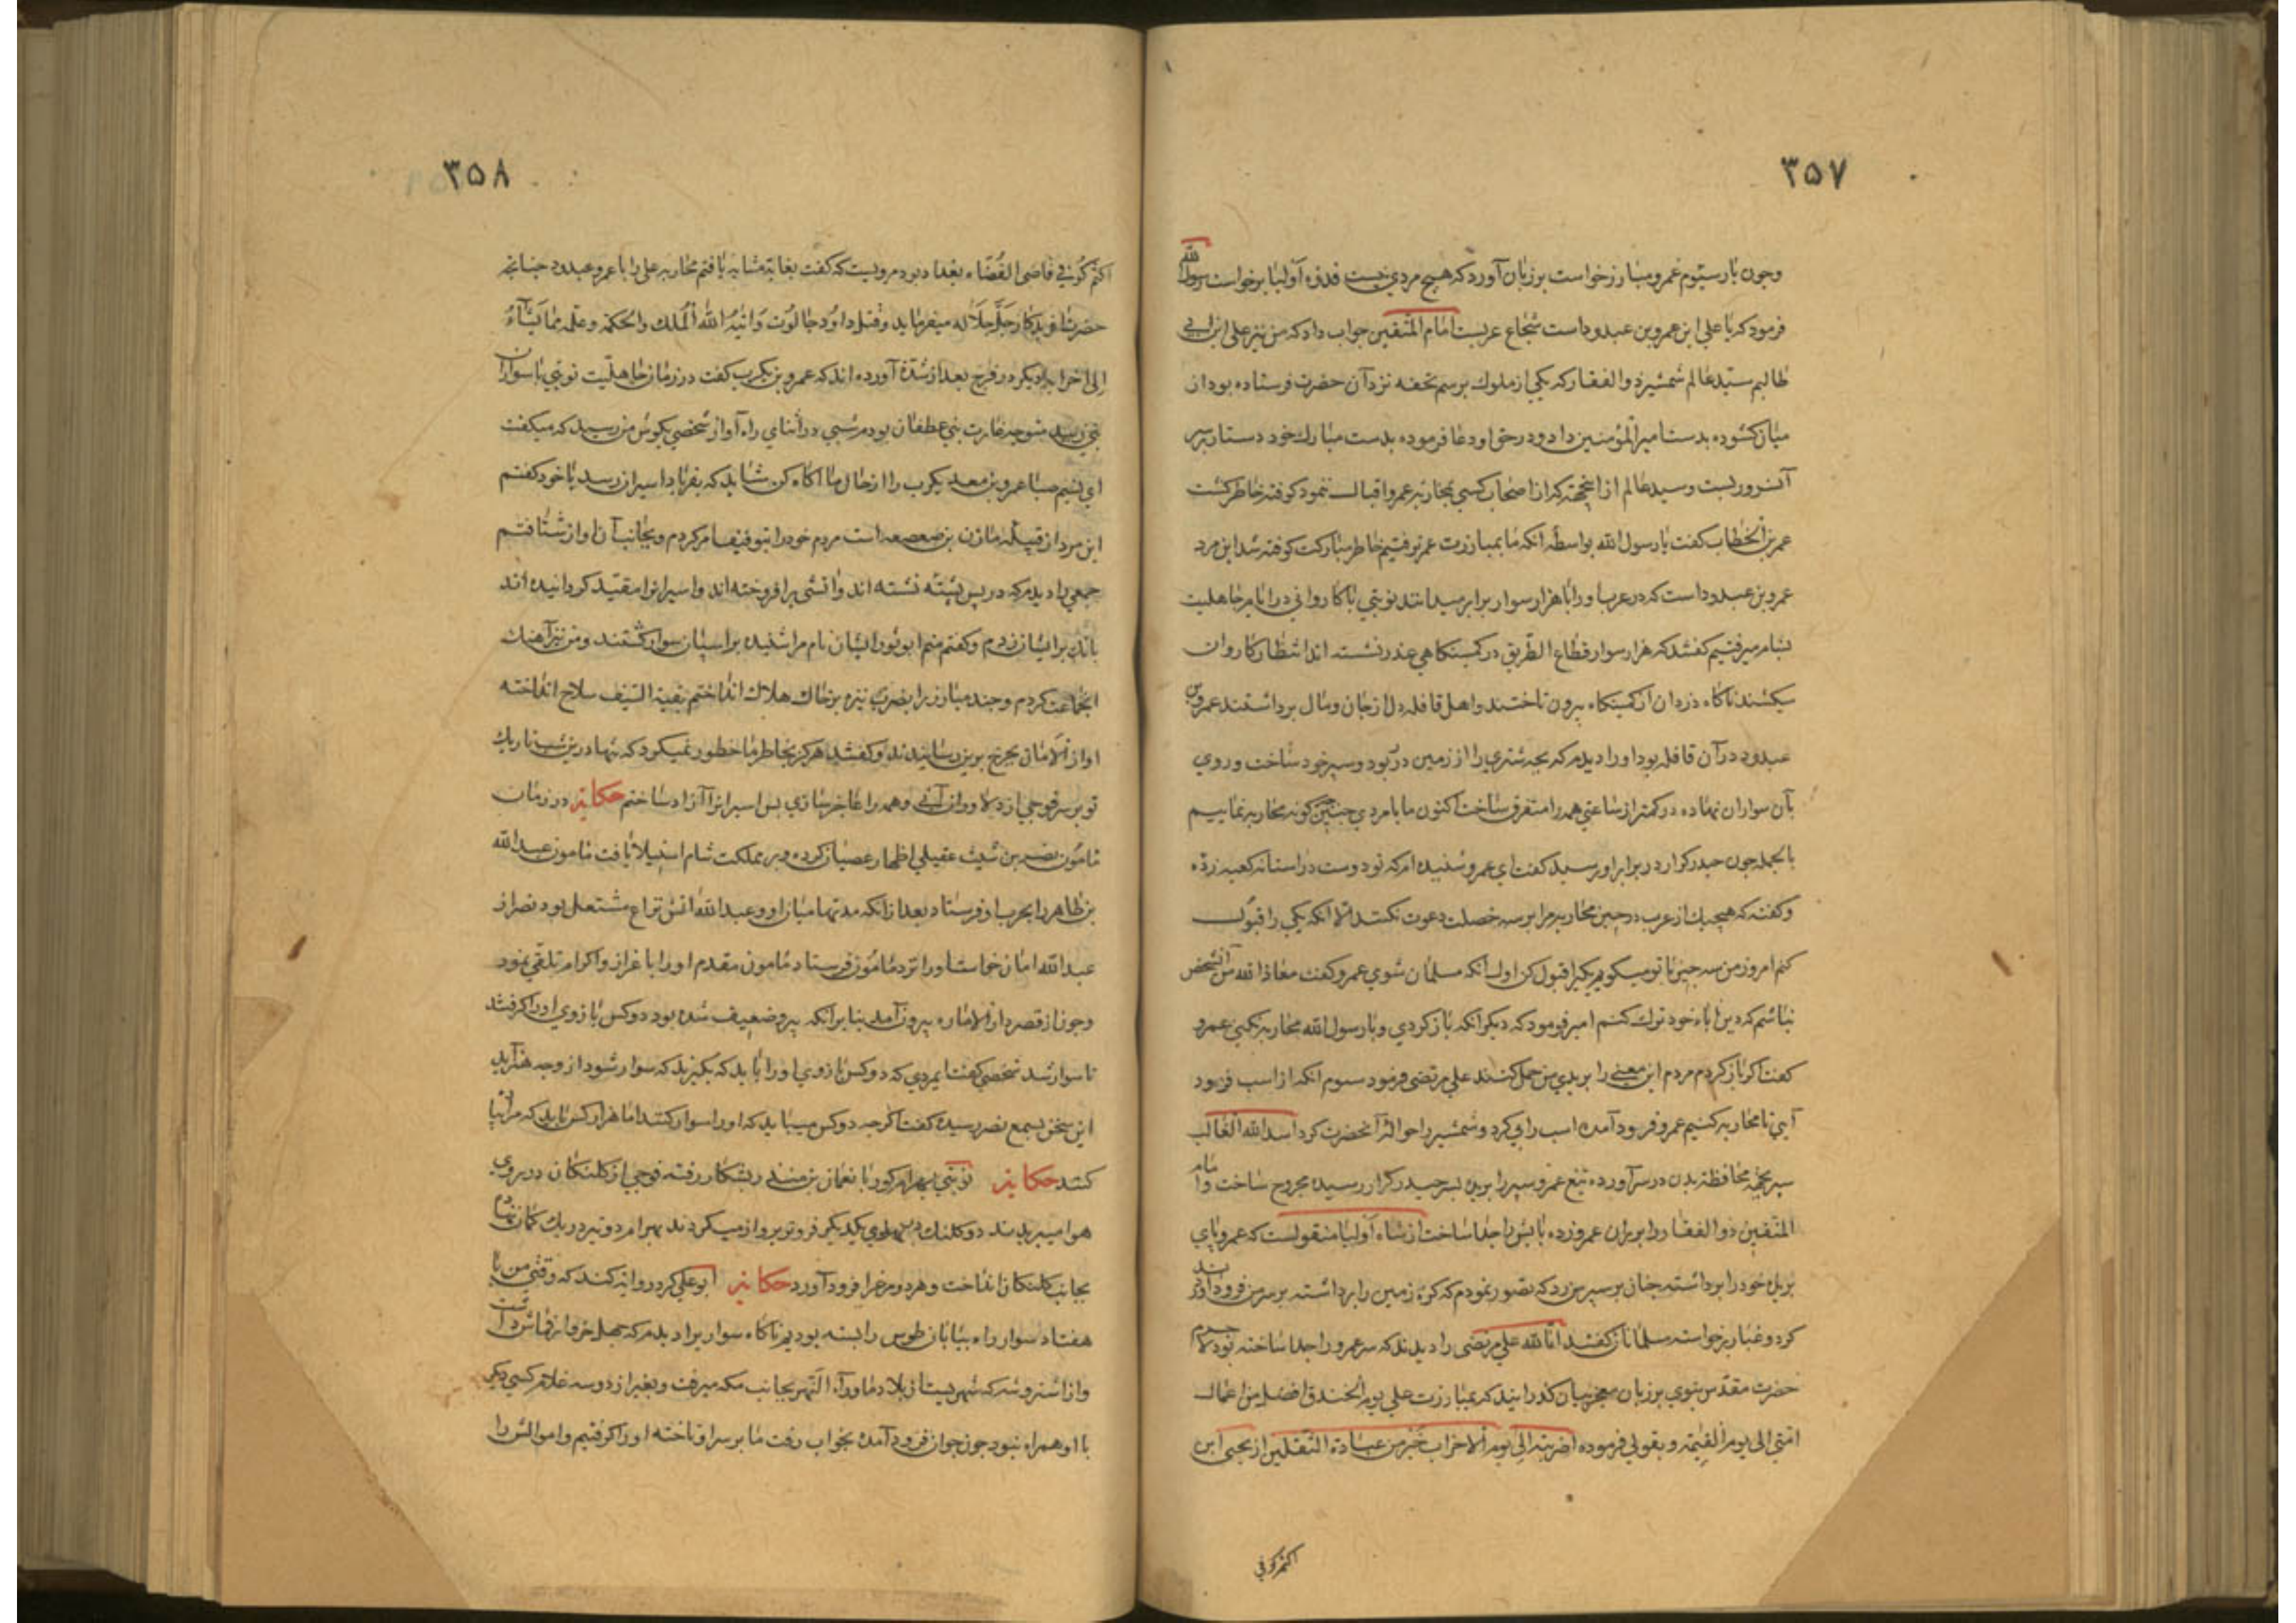 ۳۵۷
وچون بار سیّوم عمرو مبارز خواست بر زبان آورد که هیچ مردی نیست قدوه اولیا برخواست رسول الله
فرمود که یا علی این عمرو بن عبدود است شجاع عرب امام المتقین جواب داد که من نیز علی ابن ابی
طالبم سیّد عالم شمشیر ذوالفقار که یکی از ملوک برسم تحفه نزد آن حضرت فرستاده بود از
میان کشوده بدست امیرالمؤمنین داد و در حق او دعا فرموده بدست مبارک خود دستار بر سر
آنسرور بست و سید عالم از انجهته که از اصحاب کسی بمحاربه عمرو اقبال ننمود کوفته خاطر کشت
عمر بن الخطاب کفت یا رسول الله بواسطه آنکه ما بمبارزت عمر نرفتیم خاطر مبارکت کوفته شد این مرد
عمرو بن عبدود است که در عرب او را با هزار سوار برابر میدانند نوبتی با کاروانی در ایام جاهلیت
بشام میرفتیم کفتند که هزار سوار قطاع الطریق در کمینکاهی نشسته اند انتظار کاروان
میکشند ناکاه دزدان از کمینکاه بیرون تاختند و اهل قافله دل از جان و مال برداشتند عمرو بن
عبدود در آن قافله بود او را دیدم که بچه شتری را از زمین در ربود و سپر خود ساخت و روی
بآن سواران نهاده در کمتر از ساعتی همه را متفرق ساخت اکنون ما با مردی چنین چکونه محاربه نماییم
بالجمله چون حیدر کرار در برابر او رسید کفت ای عمرو شنیده ام که تو دوست در استانه کعبه زده
و کفته که هیچیک از عرب در حین محاربه مرا بر سه خصلت دعوت نکند الا آنکه یکی را قبول
کنم امروز من سه چیز با تو میکویم یکیرا قبول کن اول آنکه مسلمان شوی عمرو کفت معاذ الله من آنشخص
نباشم که دین آباء خود ترک کنم امیر فرمود که دیکر آنکه باز کردی و با رسول الله محاربه نکنی عمرو
کفت اکر باز کردم مردم این معنی را بر بددلی من حمل کنند علی مرتضی فرمود سیوم آنکه از اسب فرود
آیی تا محاربه کنیم عمرو فرود آمده اسب را پی کرد و شمشیر را حواله آنحضرت کرد اسد الله الغالب
سپر بجهة محافظت بدن در سر آورده تیغ عمرو سپر را بریده بسر حیدر کرار رسید مجروح ساخت و امام
المتقین ذوالفقار را بر ران عمرو زده پایش را جدا ساخت از شاه اولیا منقولست که عمرو پای
بریده خود را برداشته چنان بر سپر من زد که تصور نمودم که کره زمین را برداشته بر سر من فرود آوردند
کرد و غبار برخواسته مسلمانان کفتند انا لله علی مرتضی را دیدند که سر عمرو را جدا ساخته بود لاجرم
حضرت مقدس نبوی بر زبان معجز بیان کذرانید که بمبارزت علی یوم الخندق افضل من اعمال
امتی الی یوم القیمة و بقولی فرموده اضربته الی یوم الاحزاب خیر من عبادة الثقلین از یحیی ابن
اکثم کوفی
۳۵۸
اکثم کوفی قاضی القضاء بغداد بود مرویست که کفت بغایة مشابه یافتم محاربه علی را با عمرو عبدود چنانچه
حضرت آفریدکار جل جلاله میفرماید و قتل داود جالوت و اتیه الله الملک والحکمة و علمه مما یشاء
الی اخر ایه دیکر در فرج بعد از شدة آورده اند که عمرو بن یکرب کفت در زمان جاهلیت نوبتی با سواران
بنی زبید متوجه غارت بنی غطفان بودم شبی در اثنای راه آواز شخصی بکوش من رسید که میکفت
ای نسیم صبا عمرو بن معد یکرب را از حال ما آکاه کن شاید که بفریاد اسیران رسد با خود کفتم
این مرد از قبیله مازن بن صعصعه است مردم خود را بتوقف امر کردم و بجانب آن اواز شتافتم
جمعی را دیدم که در پس پشته نشسته اند و اتشی برافروخته اند و اسیرانرا مقید کردانیده اند
بانک بر ایشان زدم و کفتم منم ابو ثور ایشان نام مرا شنیده بر اسپان سوار کشتند و من نیز آهنک
انجماعت کردم و چند مبارز را بضرب نیزه بر خاک هلاک انداختم بقیة السیف سلاح انداخته
اواز الامان بچرخ برین رسانیدند و کفتند هرکز بخاطر ما خطور نمیکرد که تنها درین شب تاریک
تو بر سر فوجی از دلاوران آئی و همه را عاجز سازی پس اسیرانرا آزاد ساختم حکایة در زمان
مامون نصر بن شیث عقیلی اظهار عصیان کرده و بر مملکت شام استیلا یافت مامون عبد الله
بن طاهر را بحرب او فرستاد بعد از آنکه مدتها میان او و عبد الله اتش نزاع مشتعل بود نصر از
عبد الله امان خواست او را نزد مامون فرستاد مامون مقدم او را باعزاز و اکرام تلقی نمود
و چون از قصر دار الاماره بیرون آمد بنا بر آنکه پیر و ضعیف شده بود دو کس بازوی او را کرفتند
تا سوار شد شخصی کفت ایمردی که دو کس بازوی او را باید که بکیرند که سوار شود از وجه هنر آید
این سخن بسمع نصر رسیده کفت اکرچه دو کس میباید که او را سوار کنند اما هزار کس باید که مرا از پا
کنند حکایة نوبتی بهرام کور با نعمان بن منذر بشکار رفته فوجی از کلنکان در روی
هوا میپریدند دو کلنک در پهلوی یکدیکر فروتر پرواز میکردند بهرام دو تیر در یک کمان نهاده
بجانب کلنکان انداخت و هر دو مرغ را فرود آورد حکایة ابو علی کرد روایة کند که وقتی من با
هفتاد سوار راه بیابان طوس را بسته بودیم ناکاه سواریرا دیدم که چهل خروار قماش داشت
و از اشروشنه که شهریست از بلاد ماوراء النهر بجانب مکه میرفت و بغیر از دو سه غلام کسی دیکر
با او همراه نبود چون جوان فرود آمده بخواب رفت ما بر سر او تاخته او را کرفتیم و اموالش را